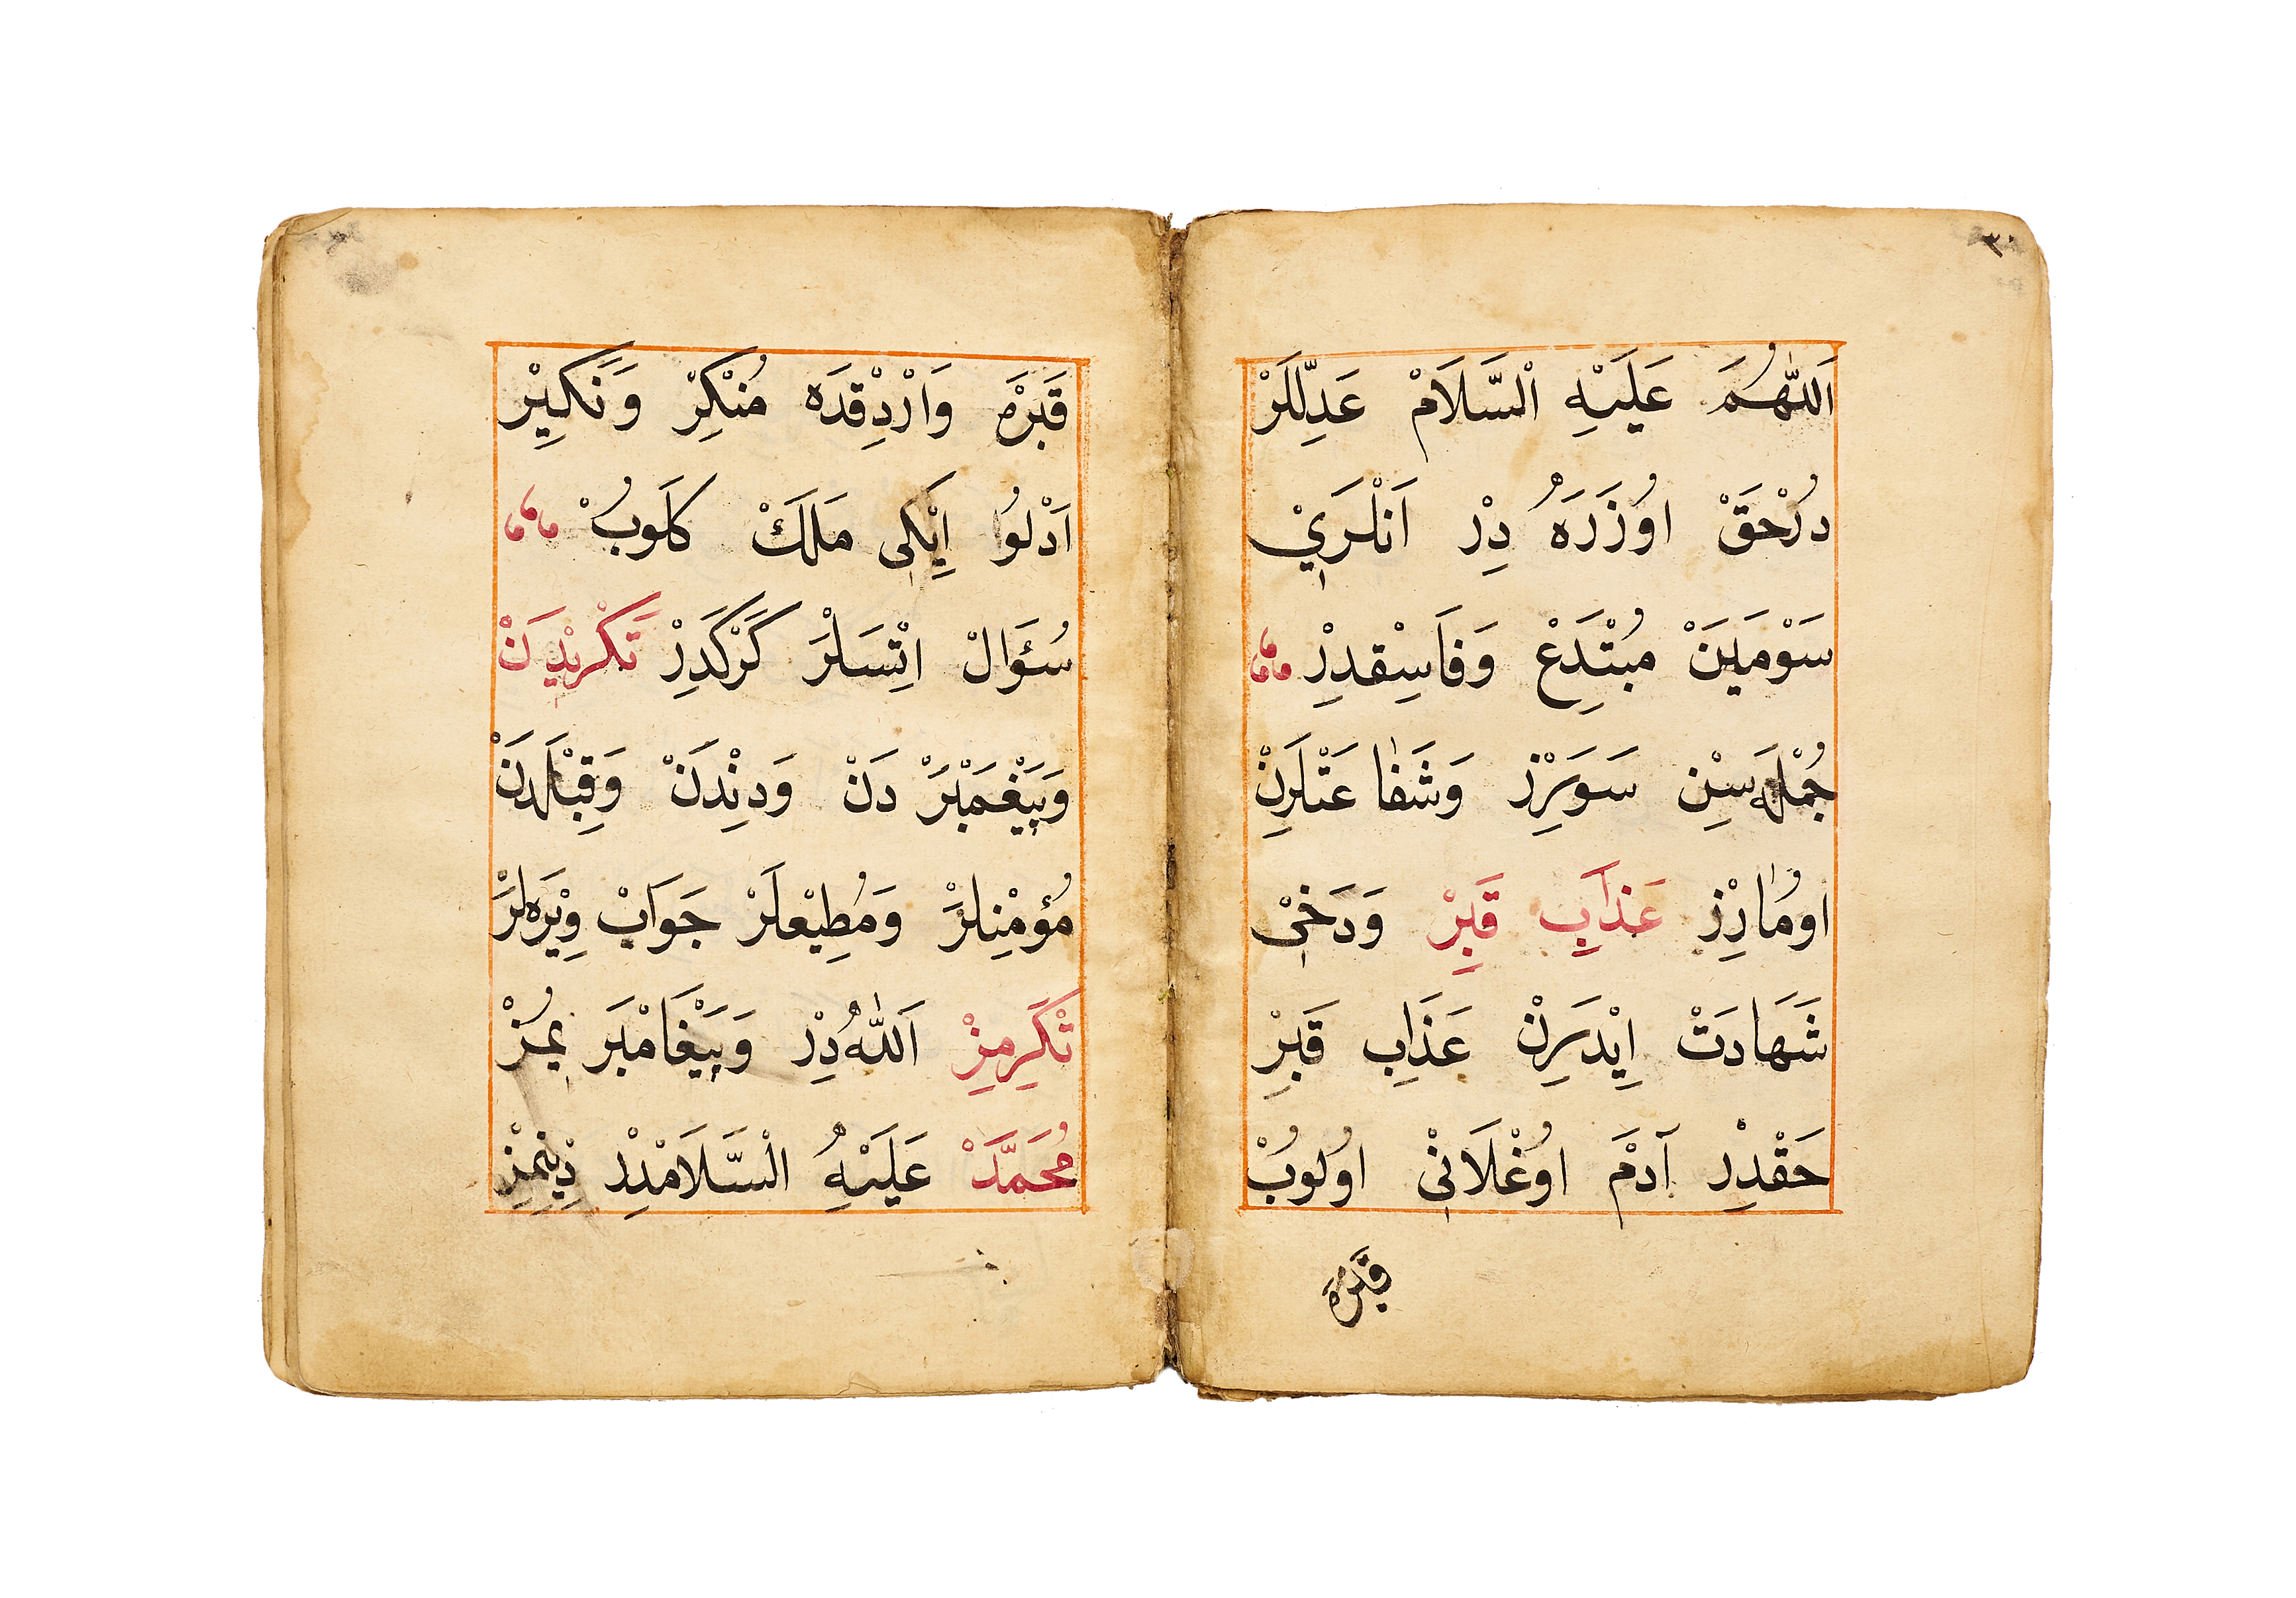 ٣٠
اَللّٰهُمَّ عَلَيْهِ اْلسَّلَامْ عَدِلَّلَرْ
دُرْحَقْ اوُزَرَهُ دِرْ اَنْلَرَيْ
سَوْمَيَنْ مُبْتَدَعْ وَفَاسِقْدِرْ
جُمْلَه سِنْ سَوَرِزْ وَشَفَاعَتْلَرِنْ
اوُمَارِزْ عَذَابِ قَبِرْ وَدَخِيْ
شَهَادَتْ اِيْدَرِنْ عَذَابِ قَبِرْ
حَقْدِرْ آدَمْ اوُغْلَانِيْ اوُلوُبْ
قَبْرَه
قَبْرَه وَارْدِقْدَه مُنْكِرْ وَنَكِيْر
اَدْلوُ اِيْكِى مَلَكْ كَلوُبْ
سُؤَالْ اِتْسَلَرْ كَرَكْدِرْ تَكْرِيْدَنْ
وَپَيْغَمْبَرْ دَنْ وَدِنْدَنْ وَقِبْلَدَنْ
مُؤْمِنْلَرْ وَمُطِيْعْلَرْ جَوَابْ وِيْرَهلَرْ
تَكْرِمِزْ اَللّٰهُ دِرْ وَپَيْغَامْبَر يمُزْ
مُحَمَّدْ عَلَيْهِ الْسَّلَامْدِرْ دِيْنِمِزْ